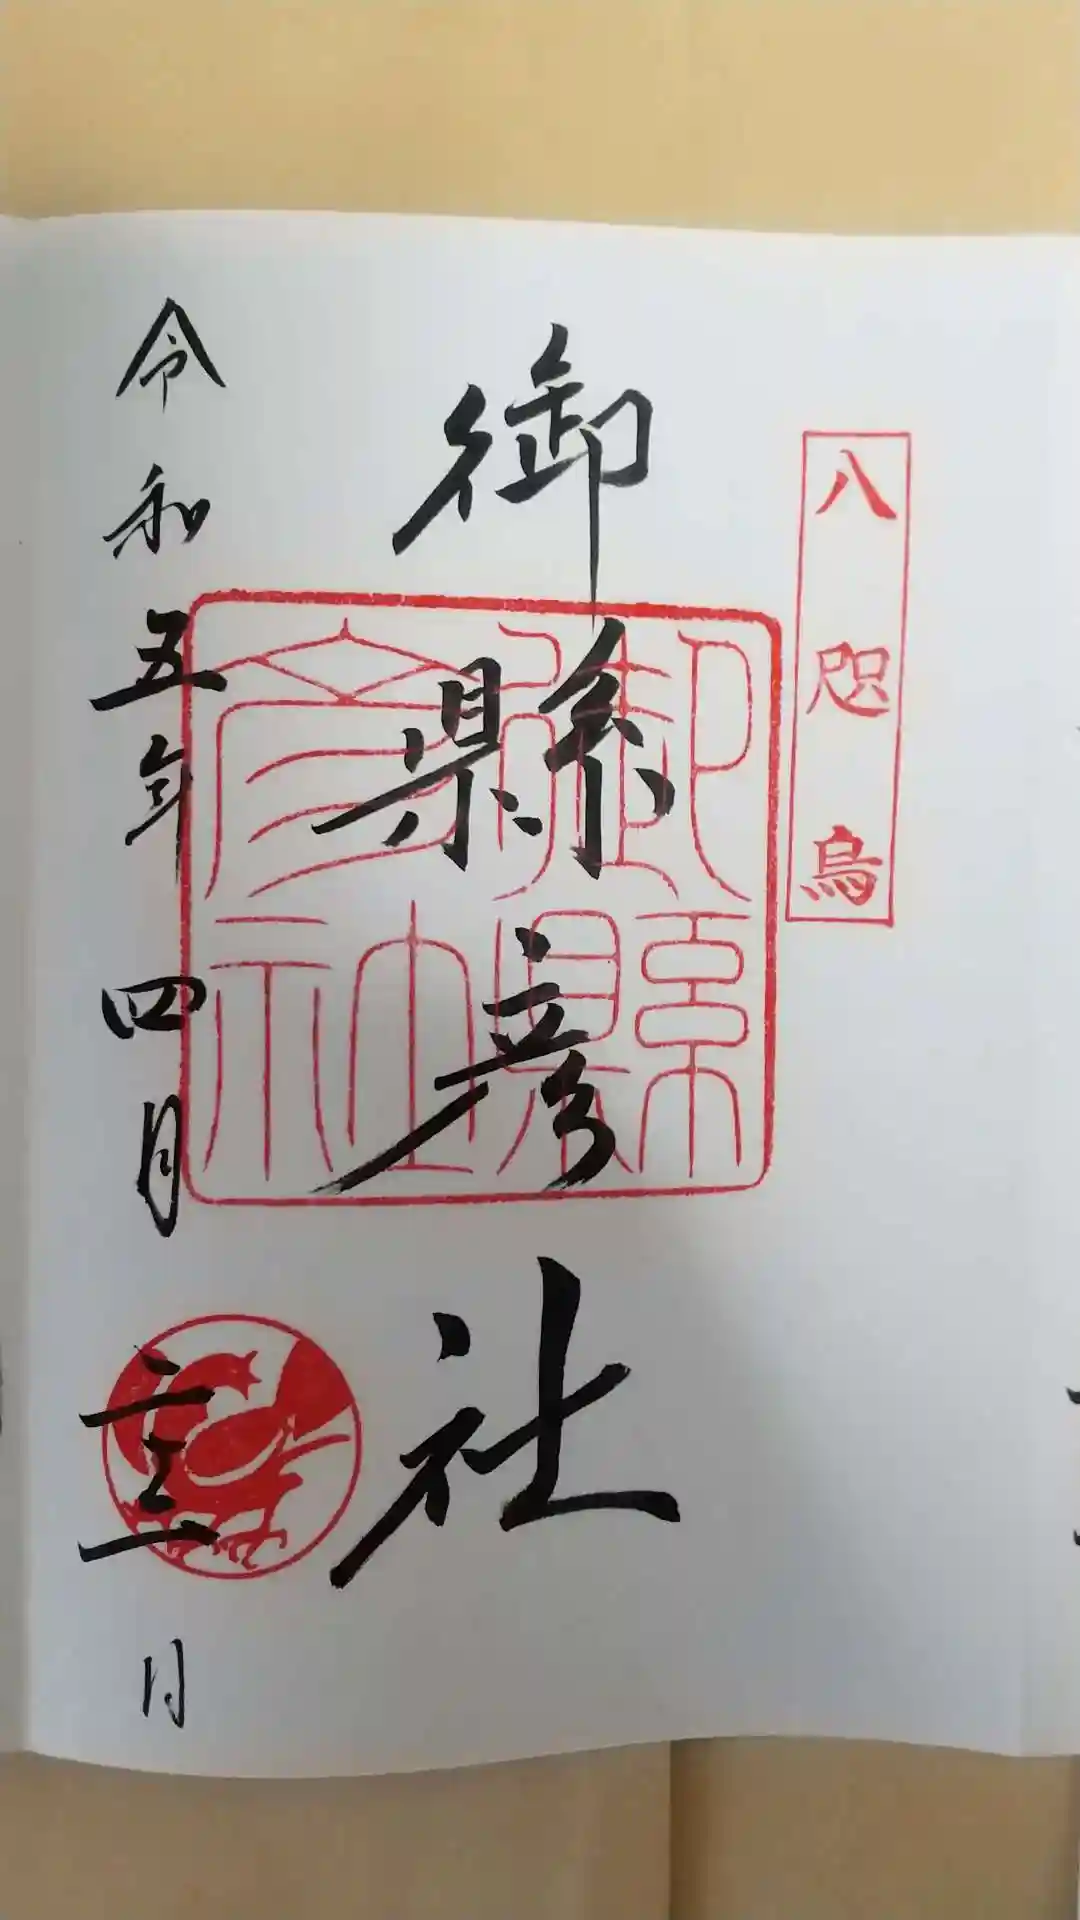 八咫烏
御縣彦社
御縣彦社
令和五年四月二十三日